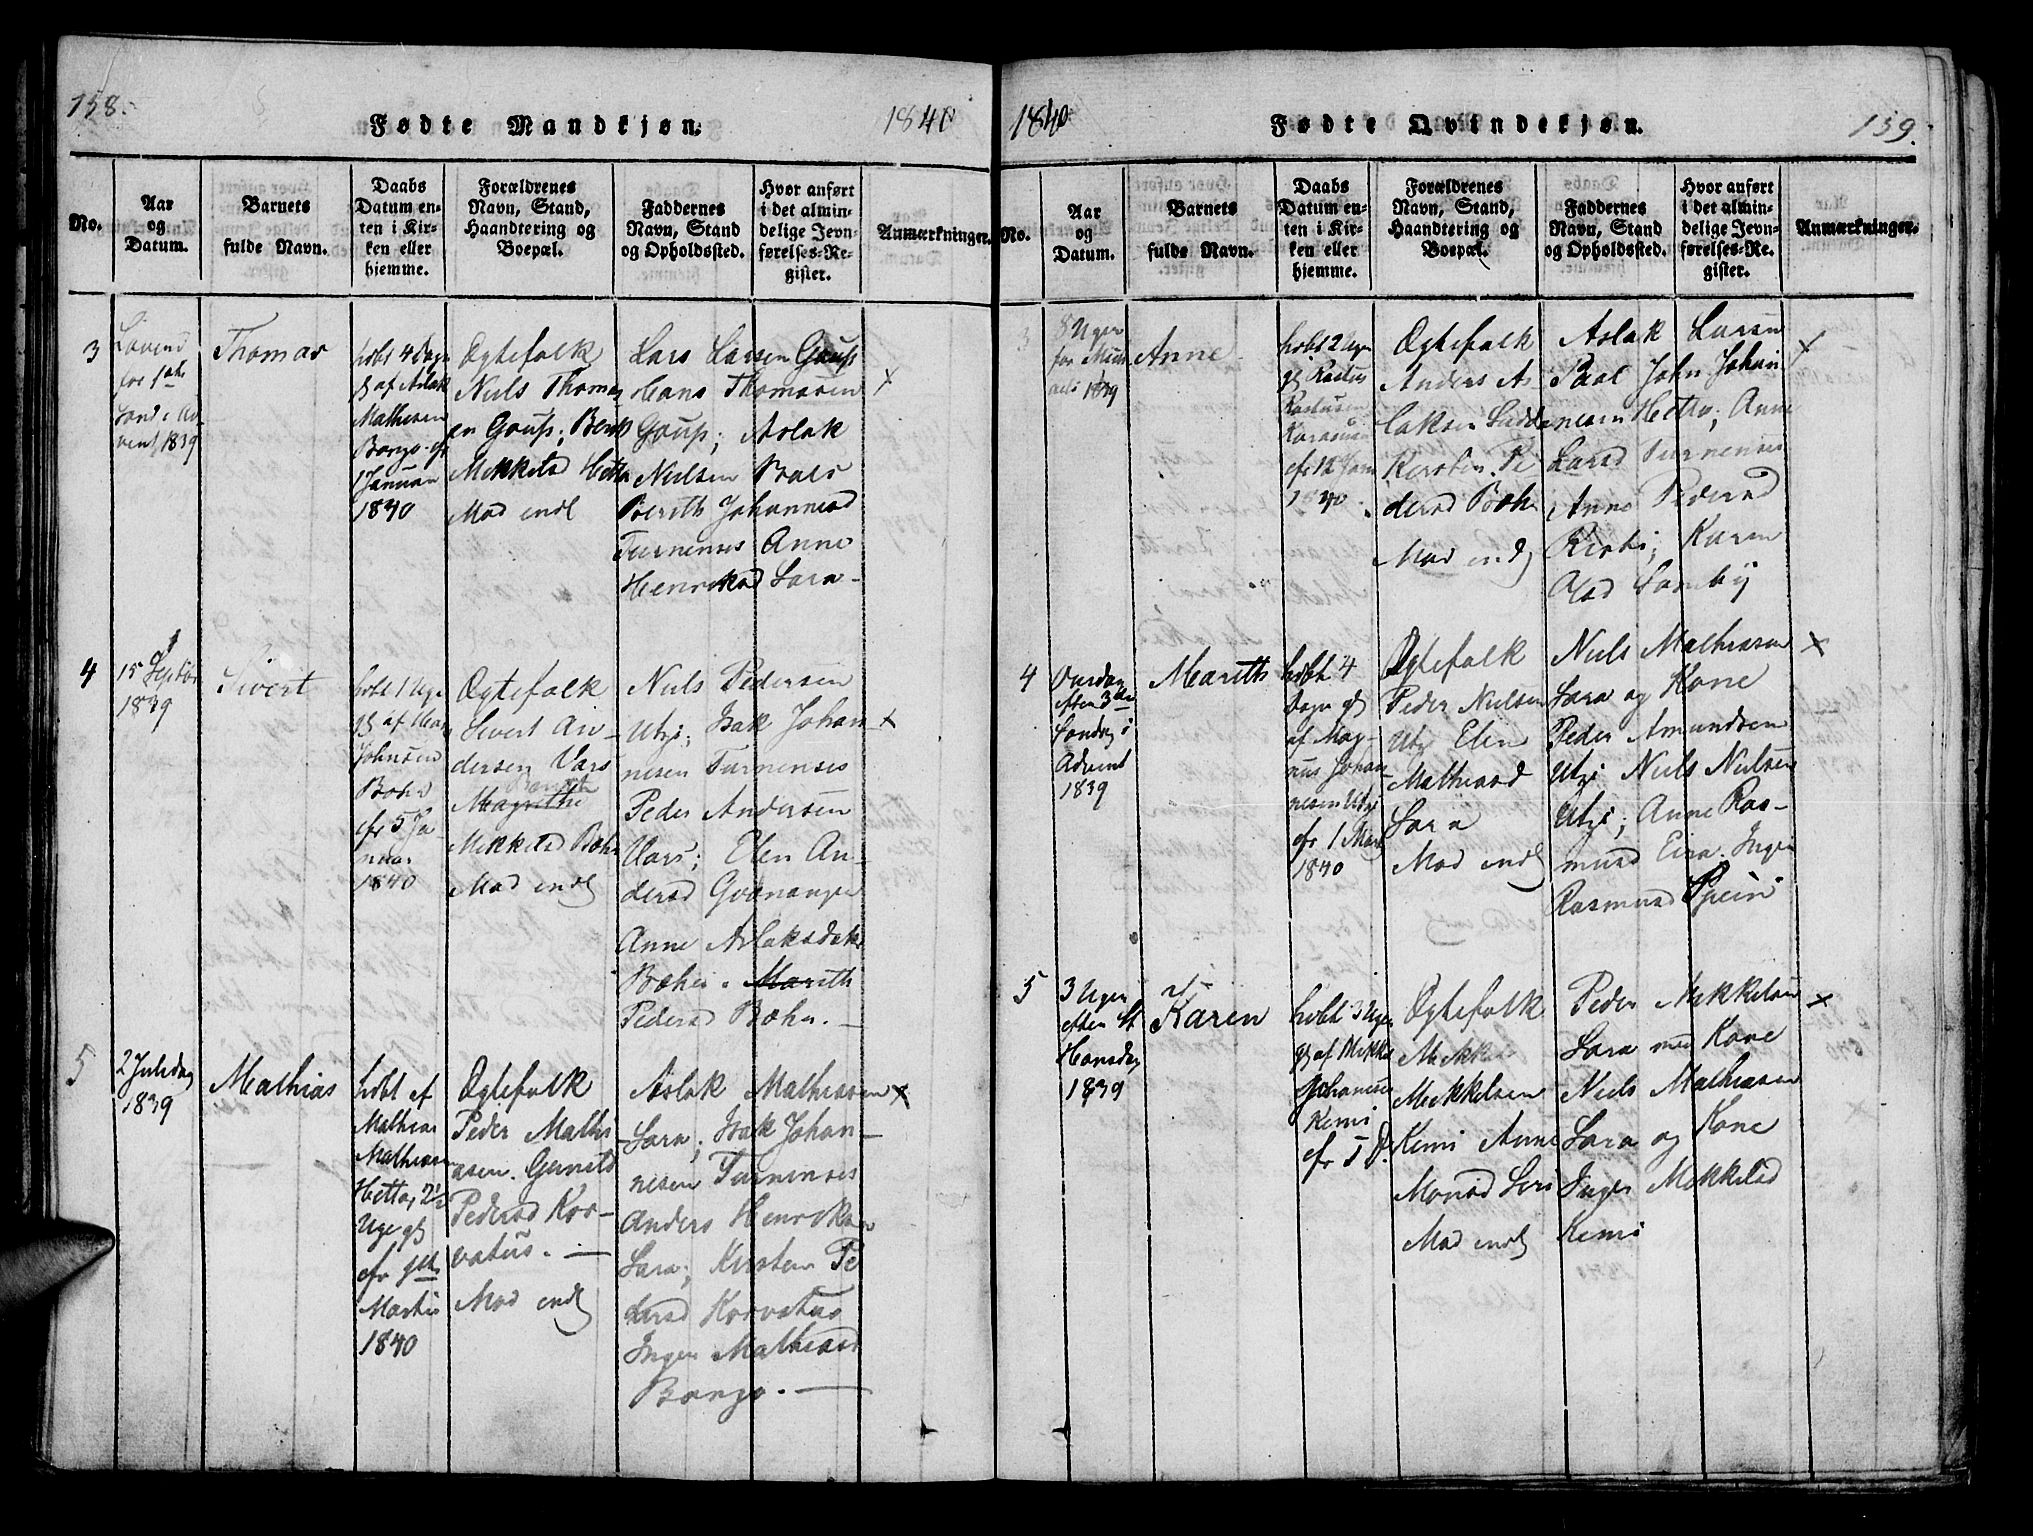 158.
Fødte Mandkjøn.
1840
No.
Aar
og
Datum.
Barnets
fulde Navn.
Daabs
Datum en-
ten i Kir-
ken eller
hjemme.
Forældrenes
Navn, Stand,
Haandtering og
Boepæl.
Faddernes
Navn, Stand
og Opholdssted.
Hvor anført
i det almin-
delige Jevn-
førelses-Re-
gister.
Anmærkninger.
3
Løverd
for 1ste
Sønd i Ad
vent 1839
Thomas
hdbt 4 Dage
gl af Aslak
Mathesen
Bongo. efr
1 Januar
1840
Ægtefolk
Niels Thomas
en Gaup; Berith
Mikkelsd Hetta
Mod endl
Lars Larsen Gaup
Hans Thomasen
Gaup; Aslak
Nielsen Bals
Berith Johannesd
Turnenses Anne
Henriksd Sara -
×
4
15 Septbr
1839
Sivert
hdbt 1 Uge
gl af Hans
Johnsen
Bæhr
efr 5 Ja
nuar
1840
Ægtefolk
Sivert An-
dersen Vars
Berith
Magrethe
Mikkelsd Bæhr
Mod endl
Niels Pedersen
Utzi; Isak Johan
nesen Turnenses
Peder Andersen
Vars; Elen An-
dersd Qvænanger
Anne Aslaksdatr
Bæhr. Marith
Pedersd Bæhr. -
×
5
2 Juledag
1839
Mathias
hdbt af
Mathias
Mathiesen
Hetta, 2½
Uge gl
efr 1ste
Martii
1840
Ægtefolk
Peder Mathi
asen. Gunild
Pedersd Kor-
vatus. -
Mod endl
Aslak Mathiesen
Sara; Isak Johan-
nesen Turnenses
Anders Henriksen
Sara; Kirsten Pe
dersd Korvatus
Inger Mathiesd
Bongo. -
×
1840
Fødte Qvindekjøn.
159.
No.
Aar
og
Datum.
Barnets
fulde Navn.
Daabs
Datum en-
ten i Kir-
ken eller
hjemme.
Forældrenes
Navn, Stand,
Haandtering og
Boepæl.
Faddernes
Navn, Stand
og Opholdssted.
Hvor anført
i det almin-
delige Jevn-
førelses-Re-
gister.
Anmærkninger.
3
8 Uger
for Mich
aeli 1839
Anne
hdbt 2 Uger
gl Rastus
Rastusen
efr 12 Jan
1840
Ægtefolk
Anders As
laksen
Kirsten Pe
dersd Bæhr
Mod endl
Aslak Larsen
Paal John Johan
nesen Hetta; Anne
Larsd Turnenses
Anne Pedersd
Karen
Olsd Somby
×
4
Onsdag
efter 3die
Søndag i
Advent
1839
Marith
hdbt 4
Dage gl
af Mag-
nus Johan
nesen Utzi
efr 1 Mart
1840
Ægtefolk
Peder Nielsen
Utzi Elen
Mathiasd
Sara
Mod endl
Niels Mathiesen
Sara og Kone
Peder Amundsen
Utzi Niels Nielsen
Utzi; Anne Ras-
musd Eira. Inger
Rasmusd
×
5
3 Uger
efter St
Hansdag
1839
Karen
hdbt 3 Uger
gl af Mikkel
Johannes
Kemi
efr 5 D.
Ægtefolk
Mikkel
Mikkelsen
Kemi Anne
Monsd Siri
Mod endl
Peder Mikkelsen
Sara med Kone
Niels Mathiesen
Sara og Kone
Inger Mikkelsd
Kemi
×